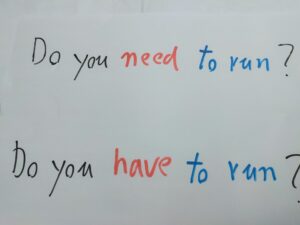 Do you need to run?
Do you have to run?